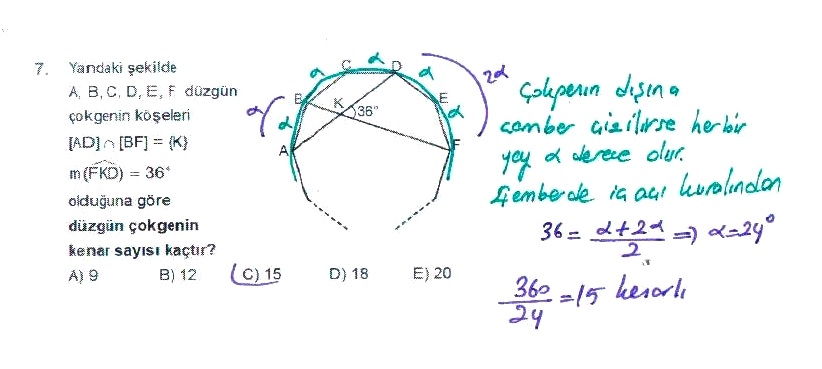 7. Yandaki şekilde
A, B, C, D, E, F düzgün
çokgenin köşeleri
[AD] ∩ [BF] = {K}
m(FKD) = 36°
olduğuna göre
düzgün çokgenin
kenar sayısı kaçtır?
A) 9 B) 12 C) 15 D) 18 E) 20
α α α α α α 2α
A B C D E F K 36°
Çokgenin dışına
çember çizilirse herbir
yay α derece olur.
Çemberde iç açı kuralından
36 = α+2α / 2 => α=24°
360 / 24 = 15 kenarlı